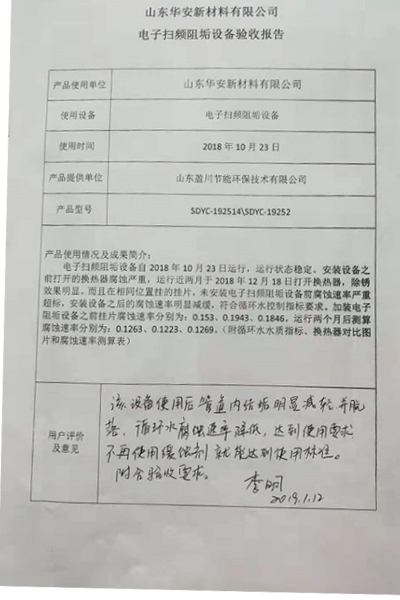 山东华安新材料有限公司
电子扫频阻垢设备验收报告
产品使用单位 山东华安新材料有限公司
使用设备 电子扫频阻垢设备
使用时间 2018 年 10 月 23 日
产品提供单位 山东盈川节能环保技术有限公司
产品型号 SDYC-192514\SDYC-19252
产品使用情况及成果简介：
电子扫频阻垢设备自 2018 年 10 月 23 日运行，运行状态稳定。安装设备之
前打开的换热器腐蚀严重，运行近两月于 2018 年 12 月 18 日打开换热器，除锈
效果明显，而且在相同位置挂的挂片，未安装电子扫频阻垢设备前腐蚀速率严重
超标，安装设备之后的腐蚀速率明显减缓，符合循环水控制指标要求。加装电子
阻垢设备之前挂片腐蚀速率分别为：0.153、0.1943、0.1846，运行两个月后测算
腐蚀速率分别为：0.1263、0.1223、0.1269。（附循环水水质指标、换热器对比图
片和腐蚀速率测算表）
用户评价
及意见
该设备使用后管道内结垢明显减轻并脱
落，循环水腐蚀速率降低，达到使用要求
不再使用缓蚀剂就能达到使用标准。
附合验收要求。
李明
2019.1.12